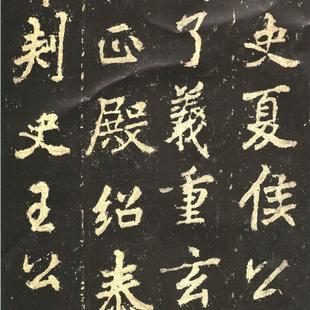 史夏侯公
了義重玄
正殿紹泰
刺史王公